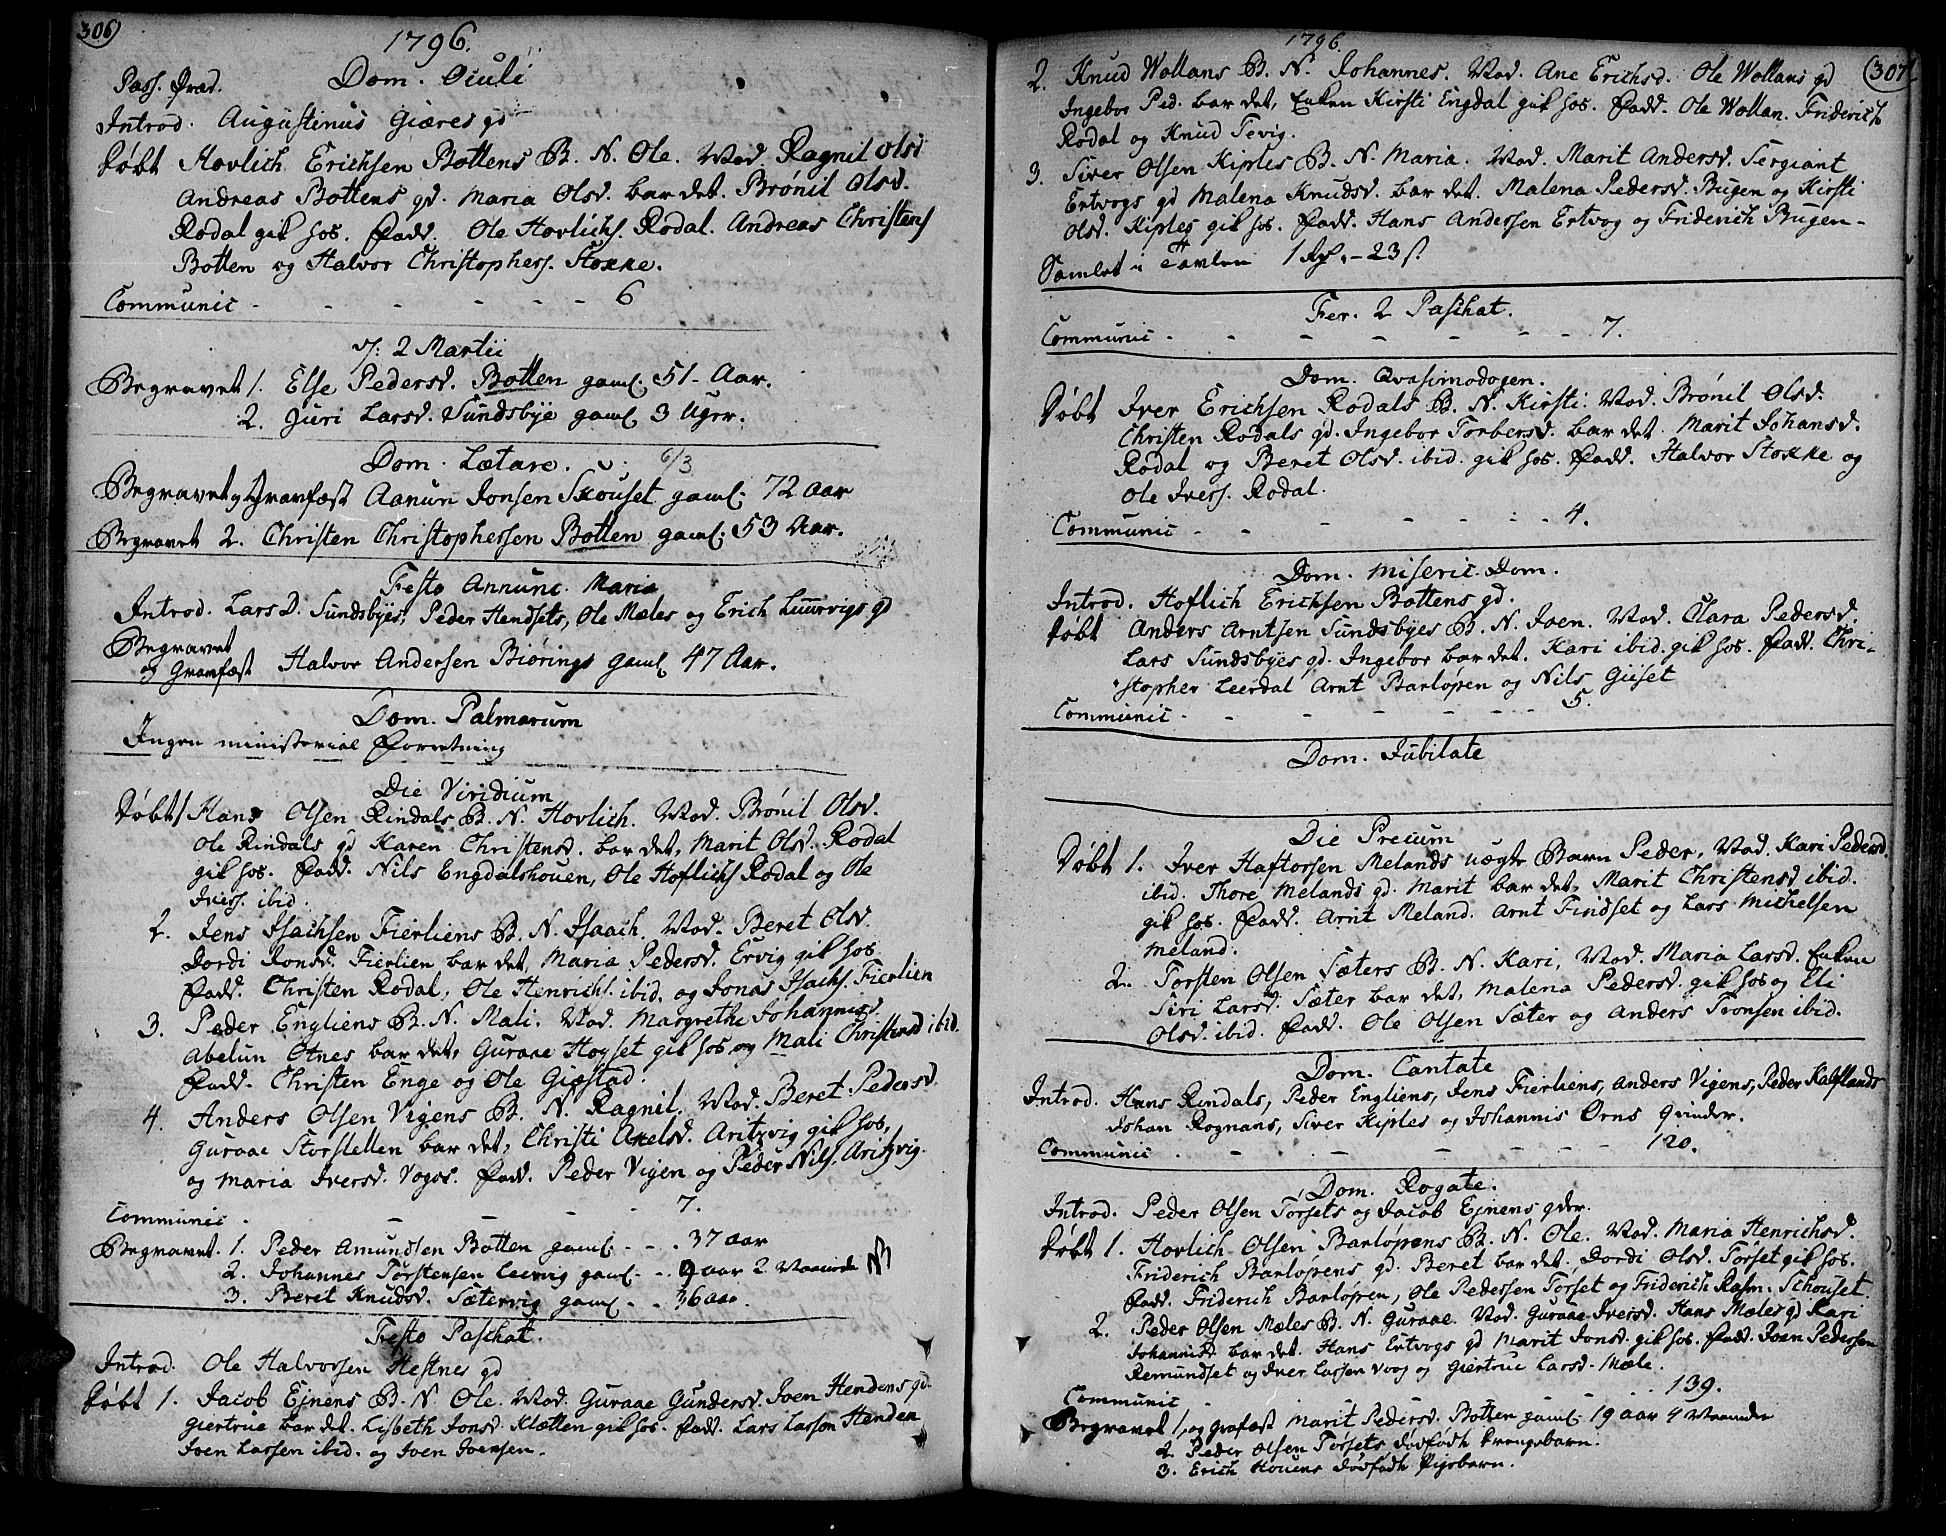 306
1796.
Pass. Præd. Dom. Oculi
Introd. Augustinus Giæres qd
Døbt Hovlich Erichsen Bottens B. N. Ole. Mod. Ragnil Olsd
Andreas Bottens qd. Maria Olsd. bar det. Brønil Olsd.
Rodal gik hos. Fadd. Ole Hovlichs. Rodal. Andreas Christens
Botten og Halvor Christophers. Stokke.
Communic - - - - - - 6
d: 2 Martii
Begravet 1. Else Pedersd. Botten gaml. 51 - Aar.
2. Juri Larsd. Sundsbye gaml 3 Uger.
Dom. Lætare. 6/3
Begravet og Gravfæst Aanun Jonsen Skouset gaml. 72 aar
Begravet 2. Christen Christophersen Botten gaml. 53 Aar.
Festo Annunc. Maria
Introd. Lars D. Sundsbyes, Peder Hendsets, Ole Mæles og Erich Luurvigs qd
Begravet
og Gravfæst Halvor Andersen Biørings gaml 47 Aar.
Dom. Palmarum
Ingen ministerial Forretning
Die Viridium
Døbt 1 Hans Olsen Rindals B. N. Hovlich. Mod. Brønil Olsd.
Ole Rindals qd Karen Christensd. bar det, Marit Olsd. Rodal
gik hos. Fadd. Nils Engdalshouen, Ole Hoflichs Rodal og Ole
Ivers. ibid.
2. Jens Isachsen Fierliens B. N. Isaach. Mod. Beret Olsd
Dordi Jonsd. Fierlien bar det, Maria Pedersd. Ervig gik hos
Fadd. Christen Rodal, Ole Henrichs. ibid. og Jonas Isachs. Fierlien
3. Peder Engliens B. N. Mali. Mod. Margrethe Johannisd.
Abelun Otnes bar det, Guraae Hogset gik hos og Mali Christensd ibid.
Fadd. Christen Enge og Ole Giæstad.
4. Anders Olsen Vigens B. N. Ragnil. Mod. Beret Pedersd.
Guraae Storslellen bar det, Christi Axelsd. Aritzvig gik hos,
og Maria Iversd. Vogos. Fadd. Peder Vigen og Peder Nils. Aritzvig.
Communic - - - - - 7.
Begravet. 1. Peder Amundsen Botten gaml - - 37 aar
2. Johannes Torstensen Leervig gaml - - 9 aar 2 Maaneder
3. Beret Knudsd. Sætervig gaml - - 36 aar.
Festo Paschat.
Introd. Ole Halvorsen Hestnes qd
Døbt 1. Jacob Ejnens B. N. Ole. Mod. Guraae Gundersd. Joen Hendens qd.
Giertrue bar det. Lisbeth Jonsd. Kletten gik hos. Fadd. Lars Larsson Henden
Joen Larsen ibid. og Joen Joensen.
1796.
307
2. Knud Wollans B. N. Johannes. Mod. Ane Erichsd. Ole Wollans qd
Ingebor Ped. bar det, Enken Kirsti Engdal gik hos. Fadd. Ole Wollan. Friderich
Rodal og Knud Tevig.
3. Siver Olsen Kiples B. N. Maria. Mod. Marit Andersd. Sergiant
Ertvogs qd Malena Knudsd. bar det. Malena Pedersd. Bugen og Kirsti
Olsd. Kiples gik hos. Fadd. Hans Andersen Ertvog og Friderich Bugen -
Samlet i Tavlen 1 Rd. - 23 s.
Fer. 2 Paschat.
Communic - - - - - - 7.
Dom. Qvasimodogen.
Døbt Iver Erichsen Rodals B. N. Kirsti. Mod. Brønil Olsd.
Christen Rodals qd. Ingebor Torbersd. bar det. Marit Johansd.
Rodal og Beret Olsd. ibid. gik hos. Fadd. Halvor Stokke og
Ole Ivers. Rodal.
Communic - - - - - 4.
Dom. Miseric. Dom.
Introd. Hoflich Erichsen Bottens qd.
Døbt Anders Arntsen Sundsbyes B. N. Joen. Mod. Clara Pedersd.
Lars Sundsbyes qd. Ingebor bar det. Kari ibid. gik hos. Fadd. Chri-
stopher Leerdal Arnt Barlopen og Nils Giset
Communic - - - - - - 5.
Dom. Jubilate
Die Precum
Døbt 1. Iver Haftorsen Melands uægte Barn Peder. Mod. Kari Pedersd.
ibid. Thore Melands qd. Marit bar det, Marit Christensd ibid.
gik hos. Fadd. Arnt Meland. Arnt Findset og Lars Michelsen
Meland.
2. Torsten Olsen Sæters B. N. Kari, Mod. Maria Larsd. Enken
Siri Larsd. Sæter bar det, Malena Pedersd. gik hos og Eli
Olsd. ibid. Fadd. Ole Olsen Sæter og Anders Tronsen ibid.
Dom. Cantate
Introd. Hans Rindals, Peder Engliens, Jens Fierliens, Anders Vigens, Peder Kalfslands
Johan Rognans, Siver Kiples og Johannis Ørns Qvinder.
Communic - - - - - - 120.
Dom. Rogate.
Introd. Peder Olsen Torsets og Jacob Ejnens qdr.
Døbt 1. Hovlich Olsen Barlopens B. N. Ole. Mod. Maria Henrichsd.
Friderich Barlopens qd. Beret bar det, Dordi Olsd. Torset gik hos.
Fadd. Friderich Barlopen, Ole Pedersen Torset og Friderich Rasm. Schouset
2. Peder Olsen Mæles B. N. Guraae. Mod. Guraae Iversd. Hans Mæles qd Kari
Johannisd. bar det. Hans Ertvogs qd Marit Jonsd. gik hos. Fadd. Joen Pedersen
Remundset og Iver Larsen Voog og Giertrue Larsd. Mæle.
Communic - - - - - 139.
Begravet 1, og grafæst Marit Pedersd. Botten gaml. 19 aar 4 Maaneder
2. Peder Olsen Torsets dødfødt Drengebarn.
3. Erich Houens dødfødt Pigebarn.